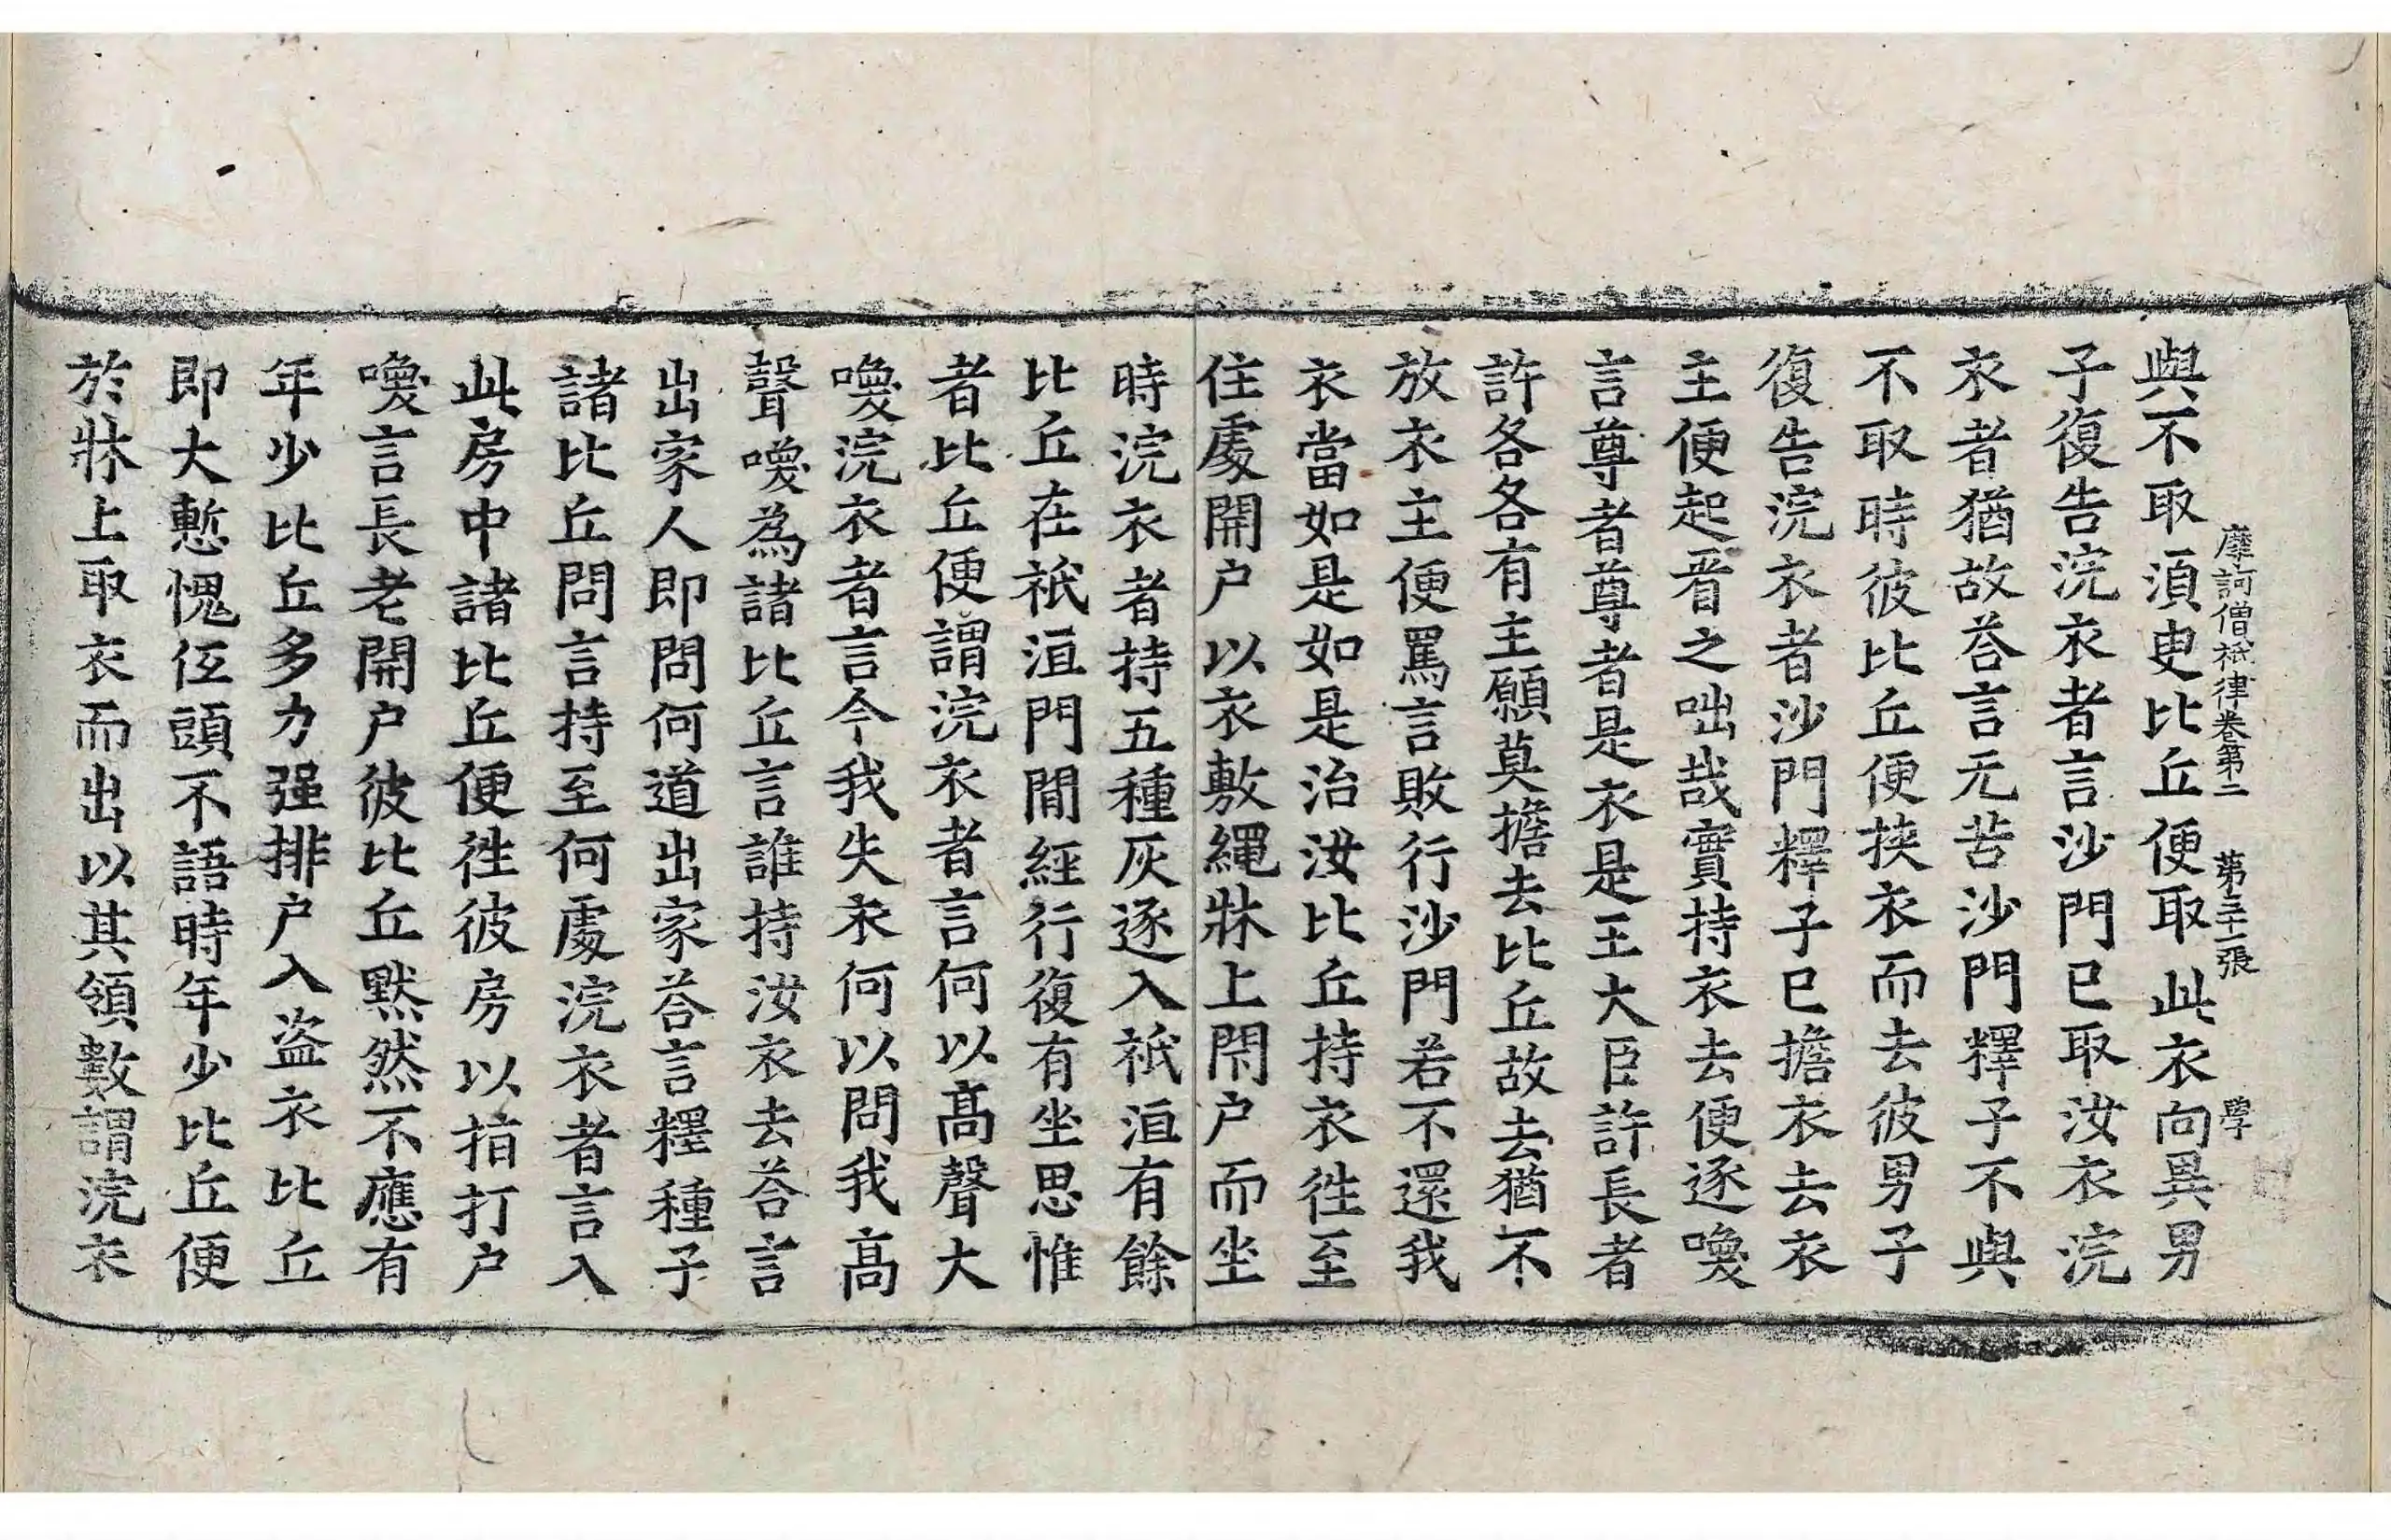 摩訶僧祇律卷第二 第三十一張 學
與不取湏㬰比丘便取此衣向異男
子復告浣衣者言沙門已取汝衣浣
衣者猶故荅言无苦沙門釋子不與
不取時彼比丘便挾衣而去彼男子
復告浣衣者沙門釋子已擔衣去衣
主便起看之咄哉實持衣去便逐喚
言尊者尊者是衣是王大臣許長者
許各各有主願莫擔去比丘故去猶不
放衣主便罵言敗行沙門若不還我
衣當如是如是治汝比丘持衣徃至
住處開户以衣敷繩牀上閇户而坐
時浣衣者持五種灰逐入祇洹有餘
比丘在祇洹門間經行復有坐思惟
者比丘便謂浣衣者言何以髙聲大
喚浣衣者言今我失衣何以問我髙
聲喚為諸比丘言誰持汝衣去荅言
出家人即問何道出家荅言釋種子
諸比丘問言持至何處浣衣者言入
此房中諸比丘便徃彼房以指打户
喚言長老開户彼比丘默然不應有
年少比丘多力强排户入盗衣比丘
即大慙愧低頭不語時年少比丘便
於牀上取衣而出以其領數謂浣衣